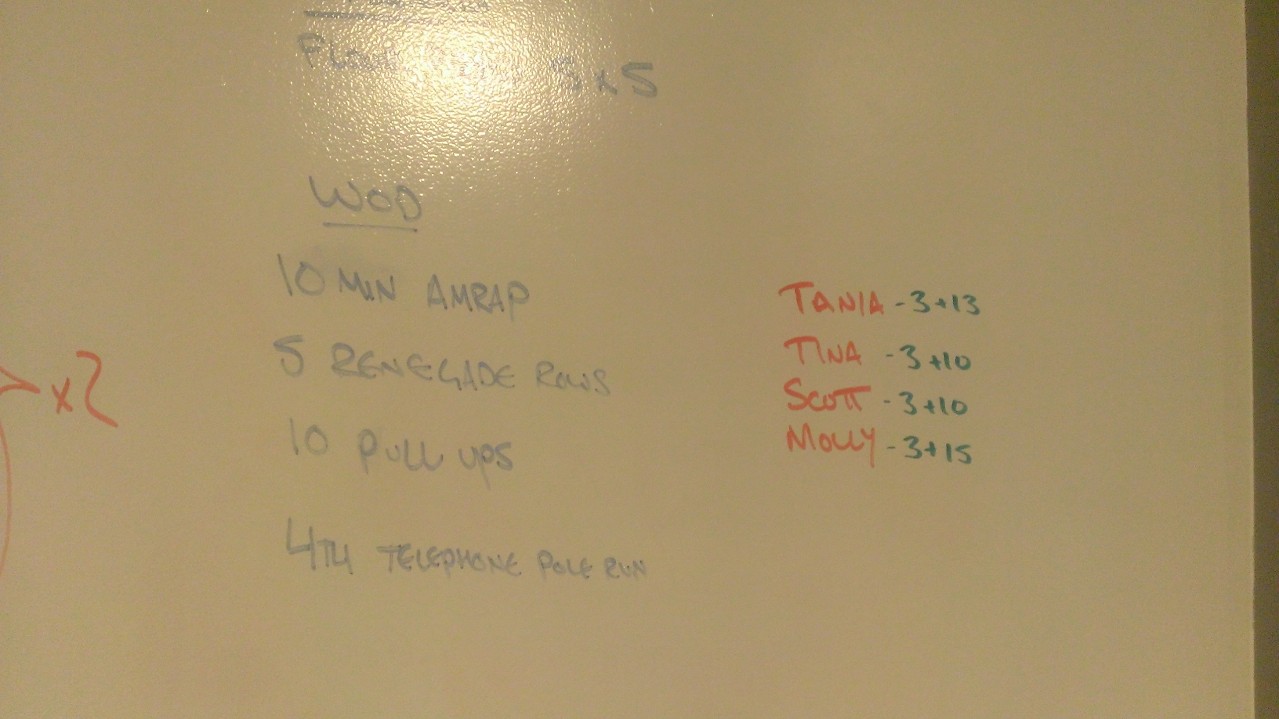 5x5
WOD
10 MIN AMRAP
5 RENEGADE ROWS
10 PULL UPS
4TH TELEPHONE POLE RUN
x2
TANIA - 3+13
TINA - 3+10
SCOTT - 3+10
MOLLY - 3+15